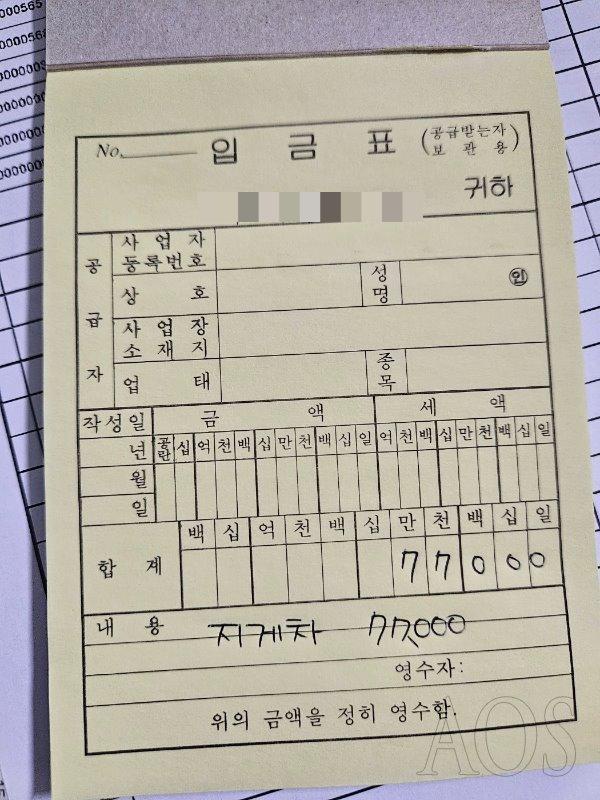 0000568
No. 입 금 표 (공급받는자 보 관 용)
귀하
공 급 자
사 업 자 등록번호
상 호 성 명 ㊞
사 업 장 소 재 지
업 태 종 목
작성일 금 액 세 액
년 공란 십 억 천 백 십 만 천 백 십 일 억 천 백 십 만 천 백 십 일
월
일
백 십 억 천 백 십 만 천 백 십 일
합 계 7 7 0 0 0
내 용 지게차 77,000
영수자:
위의 금액을 정히 영수함.
AOS